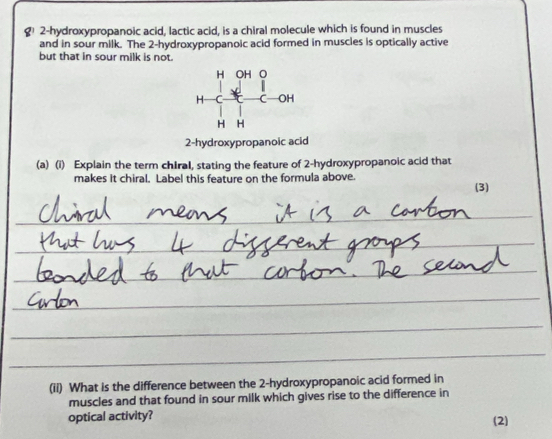 8) 2-hydroxypropanoic acid, lactic acid, is a chiral molecule which is found in muscles
and in sour milk. The 2-hydroxypropanoic acid formed in muscles is optically active
but that in sour milk is not.
H OH O
H—C—C—C—OH
H H
2-hydroxypropanoic acid
(a) (i) Explain the term chiral, stating the feature of 2-hydroxypropanoic acid that
makes it chiral. Label this feature on the formula above.
(3)
Chiral means it is a carbon
that has 4 different groups
bonded to that carbon. The second
carbon
(ii) What is the difference between the 2-hydroxypropanoic acid formed in
muscles and that found in sour milk which gives rise to the difference in
optical activity?
(2)